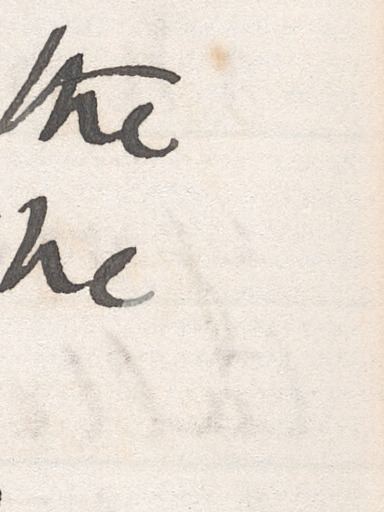 the
he